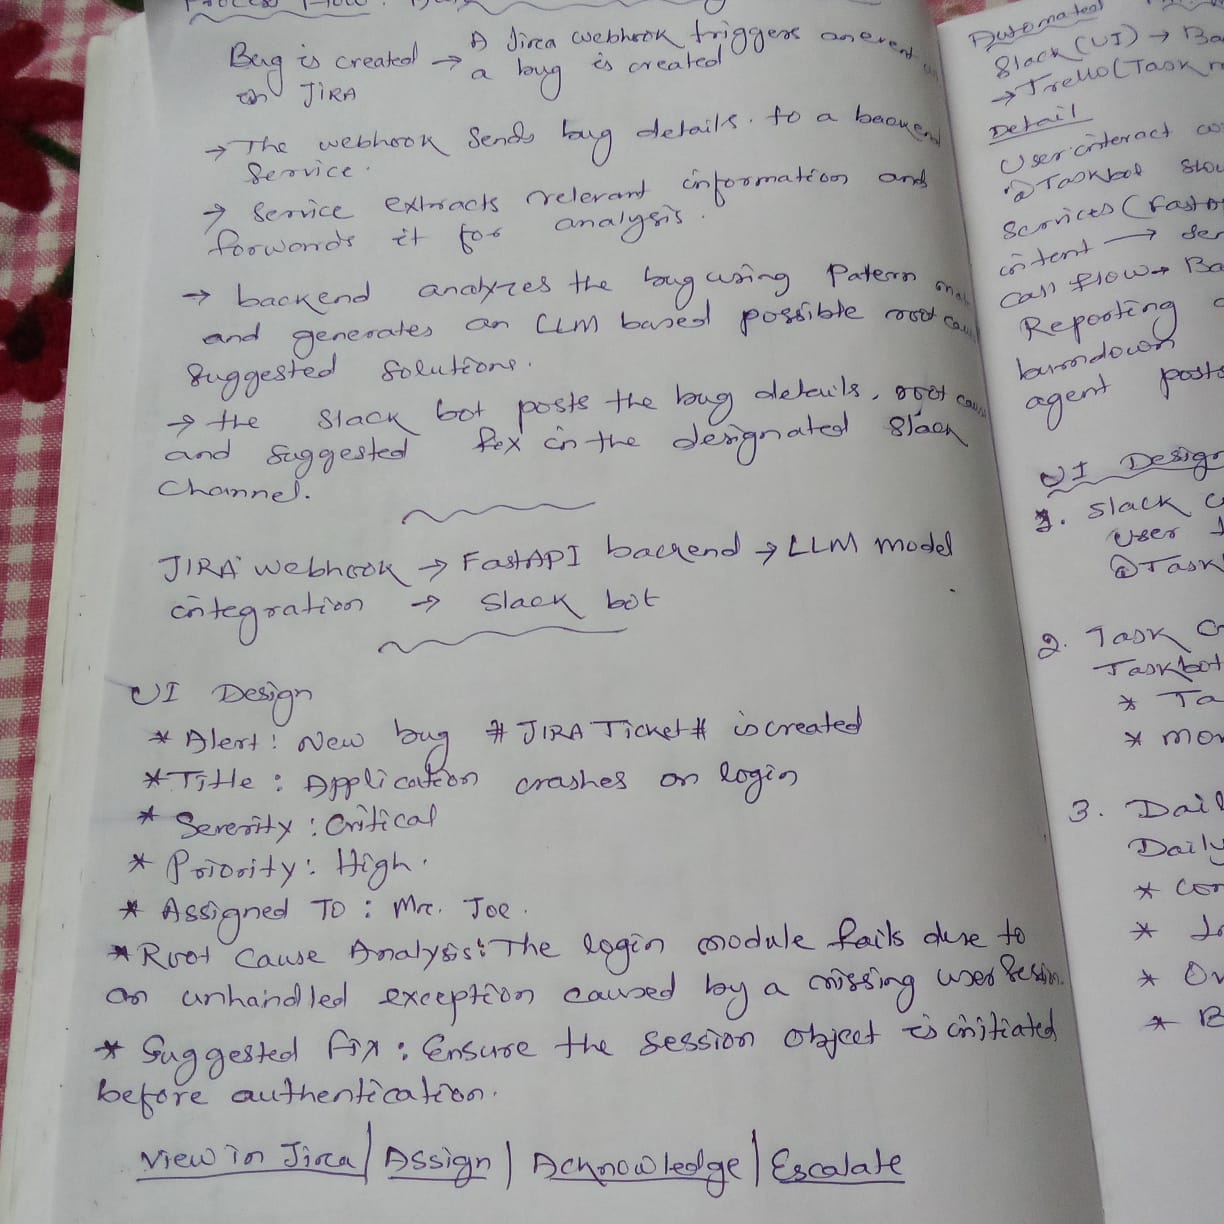 Process Flow:
Bug is created → A Jira webhook triggers an event
on JIRA a bug is created
→ The webhook sends bug details. to a backend
service.
→ service extracts relevant information and
forwards it for analysis.
→ backend analyzes the bug using Patern
and generates an LLM based possible root
suggested solutions.
→ the slack bot posts the bug details, root
and suggested fix in the designated slack
channel.
JIRA webhook → FastAPI backend → LLM model
integration → slack bot
UI Design
* Alert: New bug # JIRA Ticket # is created
* Title: Application crashes on login
* Severity: Critical
* Priority: High.
* Assigned To: Mr. Joe.
* Root Cause Analysis: The login module fails due to
an unhandled exception caused by a missing user session.
* Suggested fix: Ensure the session object is initiated
before authentication.
View in Jira | Assign | Acknowledge | Escalate
Automated
Slack (UI) →
→ Trello (Task
Detail
User interact
@Taskbot
Services (
intent →
Call flow →
Reporting
burndown
agent posts
UI Design
1. Slack
User
@Task
2. Task
Taskbot
*
*
3.
*
*
*
*